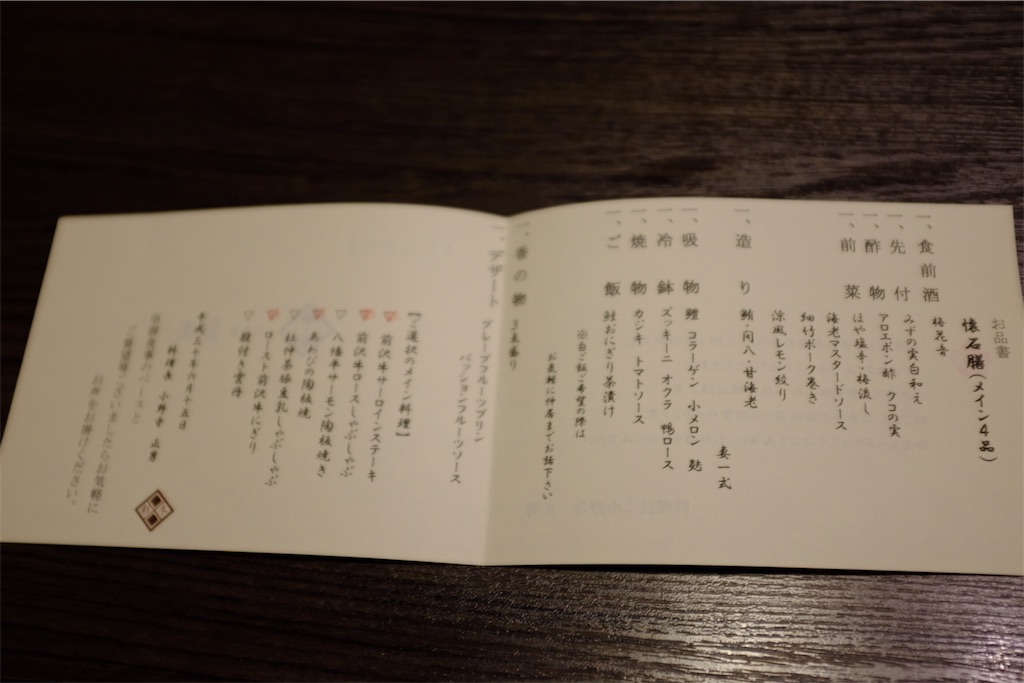 お品書
懐石膳(メイン4品)
一、食前酒
梅花音
一、先付
みずの実白和え
一、酢物
アロエポン酢 クコの実
一、前菜
ほや塩辛・梅流し
海老マスタードソース
細竹ポーク巻き
涼風レモン絞り
一、造り
鮪・間八・甘海老
妻一式
一、吸物
鱧 コラーゲン 小メロン 麩
一、冷鉢
ズッキーニ オクラ 鴨ロース
一、焼物
カジキ トマトソース
一、ご飯
鮭おにぎり茶漬け
※白ご飯ご希望の際は
お気軽に仲居までお話下さい
一、香の物 3点盛り
一、デザート
グレープフルーツプリン
パッションフルーツソース
【ご選択のメイン料理】
前沢牛サーロインステーキ
前沢牛ロースしゃぶしゃぶ
▽ 八幡平サーモン陶板焼き
あわびの陶板焼
▽ 杜仲茶豚豆乳しゃぶしゃぶ
ロースト前沢牛にぎり
▽ 殻付き雲丹
平成三十年六月十五日
料理長 小野寺
お声をお掛けください。